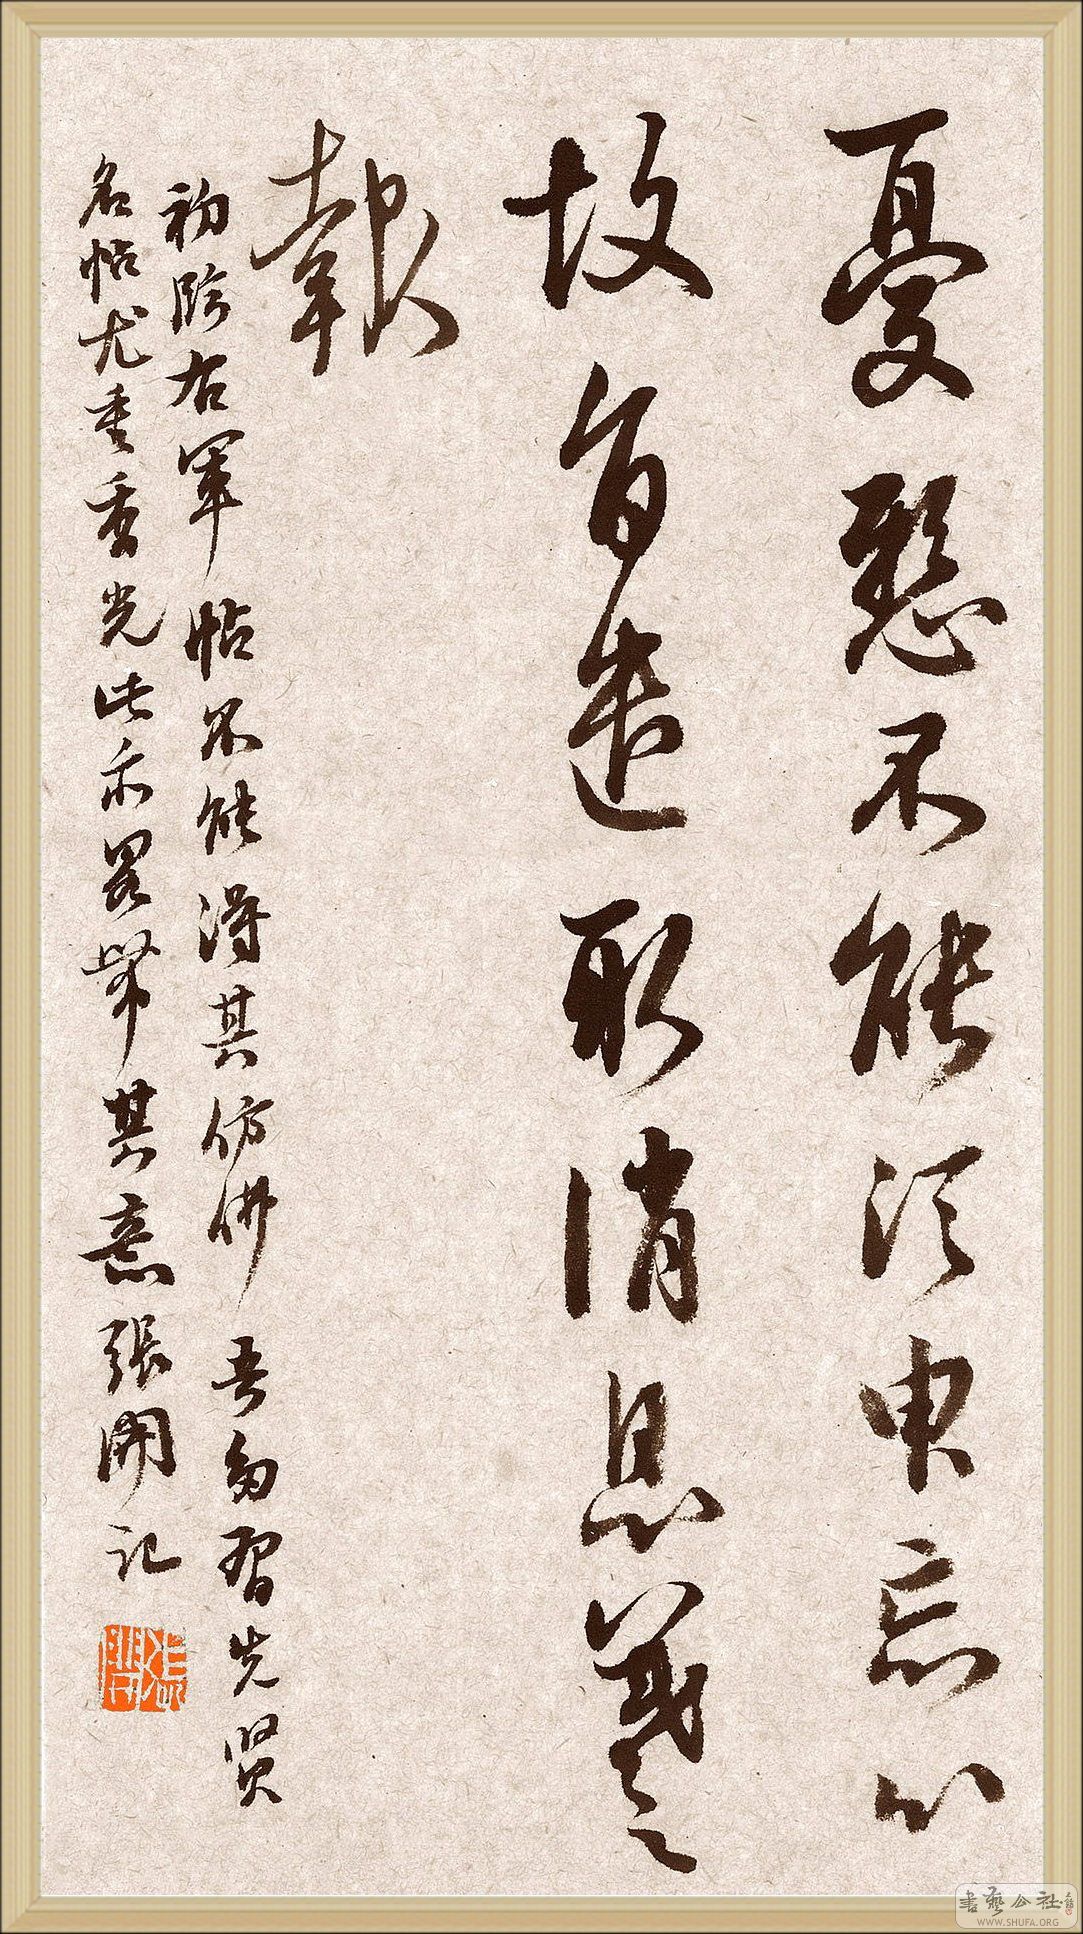 憂懸不能須臾忘心
故旨遣取消息羲之
報
初臨右軍帖不能得其仿佛吾每習先賢
名帖尤重香光此亦略帶其意張開記
書藝公社
WWW.SHUFA.ORG